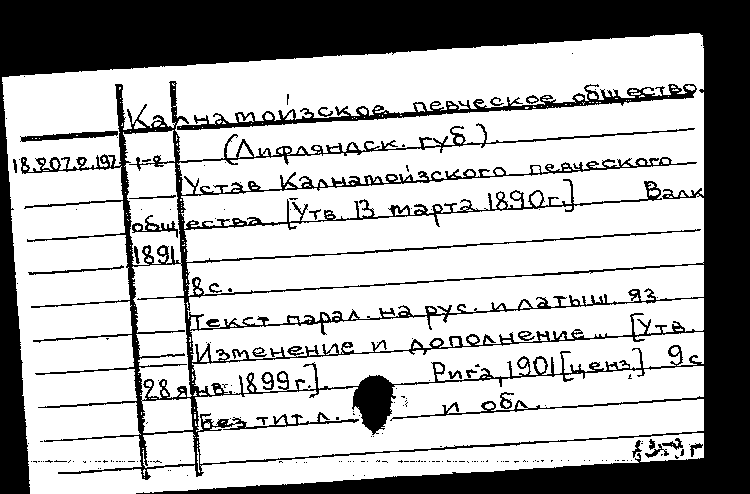 Калнамойзское певческое общество.
(Лифляндск. губ.)
18.207.2.197 1-2
Устав Калнамойзского певческого
общества. [Утв. 13 марта 1890г.] Валк
1891.
8с.
Текст парал. на рус. и латыш. яз
Изменение и дополнение... [Утв.
28 янв. 1899г.]. Рига, 1901 [ценз.] 9с
Без тит. л. и обл.